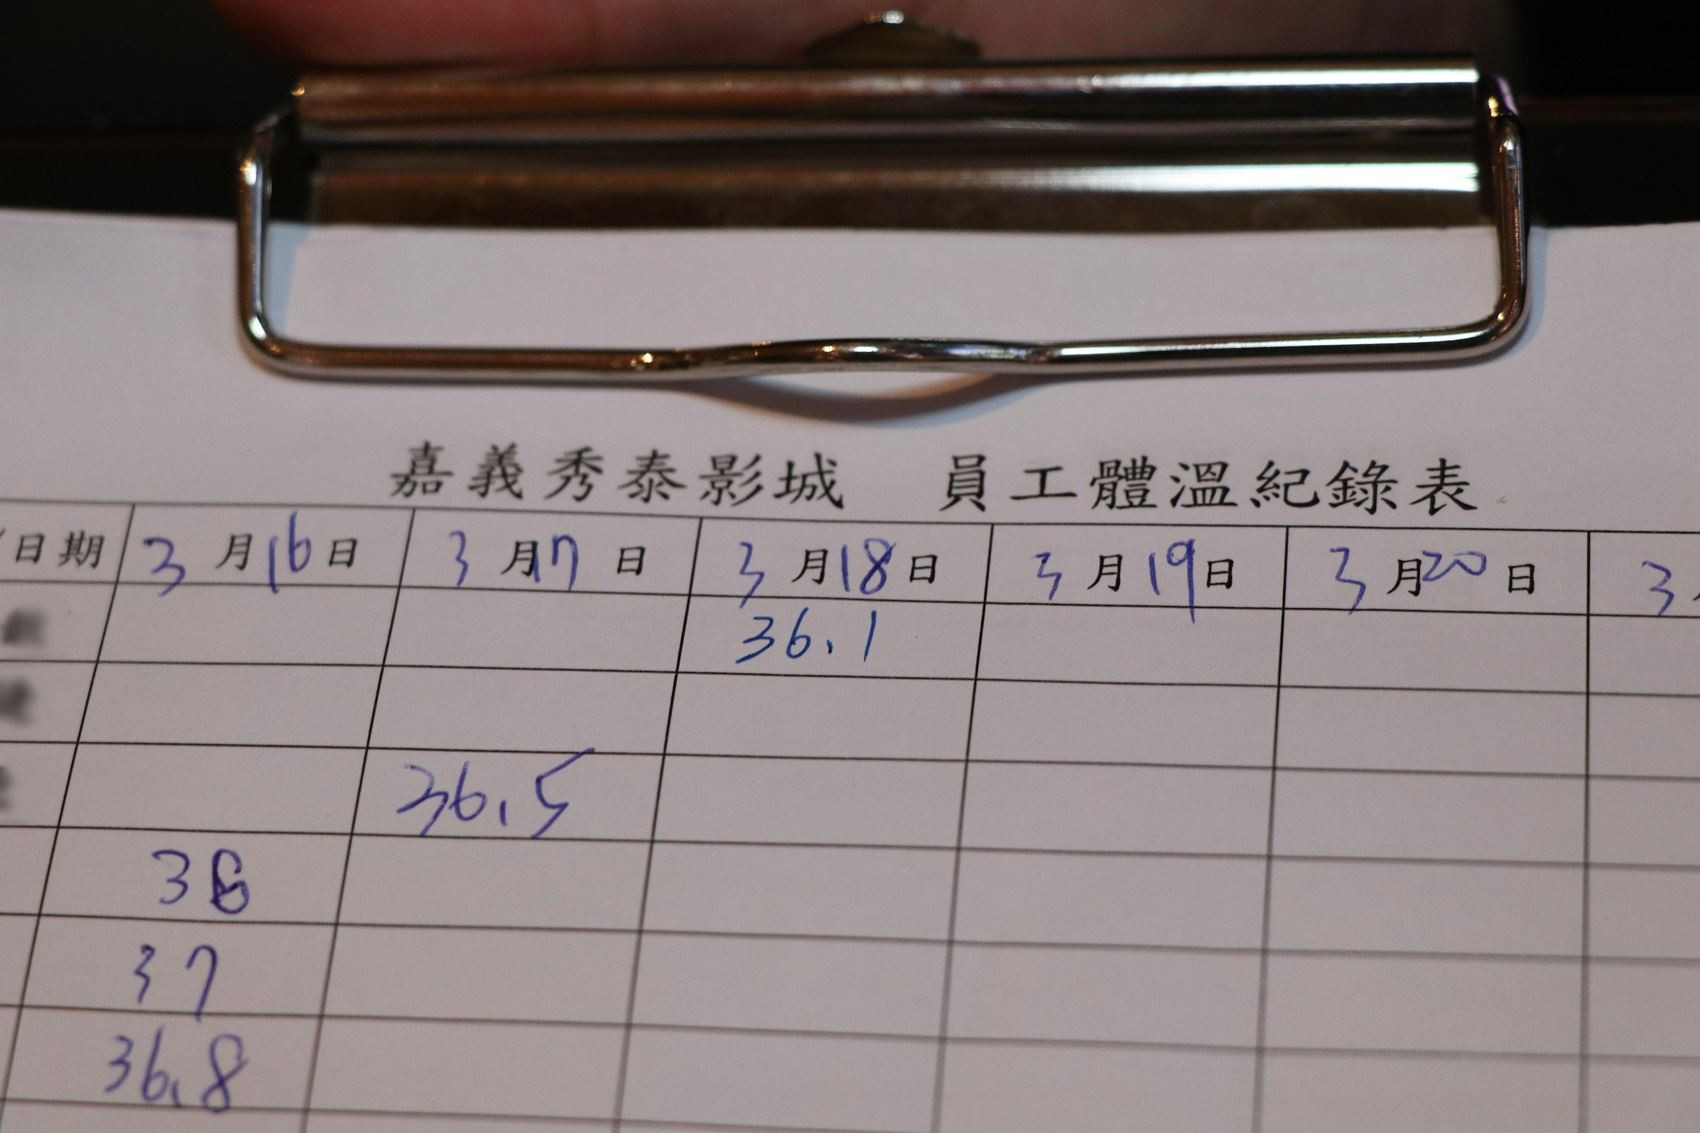 嘉義秀泰影城 員工體溫紀錄表
/日期 3月16日 3月17日 3月18日 3月19日 3月20日 3
36.1
36.5
37
36.8